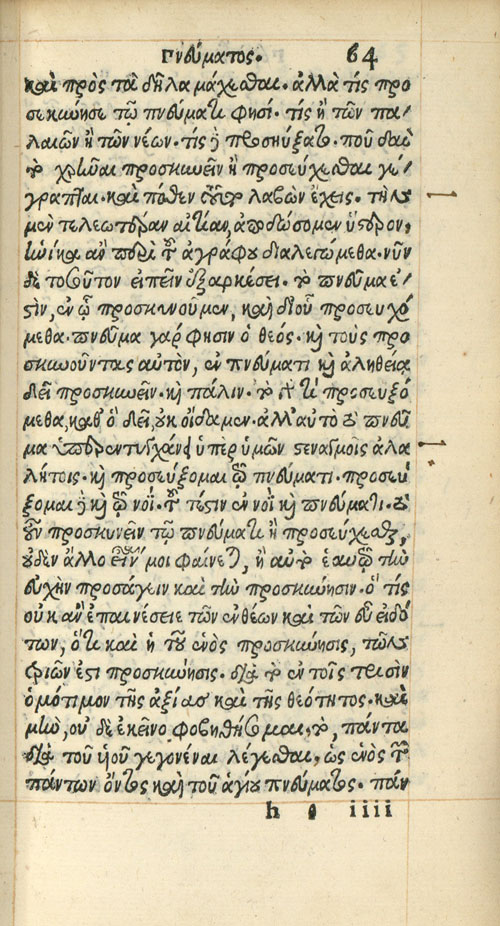 πνεύματος. 64
καὶ πρὸς τὰ δῆλα μάχεσθαι. ἀλλὰ τίς προ
σεκιώησε τῷ πνεύματι φησί. τίς ἢ τῶν πα/
λαιῶν ἢ τῶν νέων. τίς ἢ προσηύξατο. ποῦ δαὶ
τὸ χρῆναι προσκιωεῖν ἢ προσεύχεσθαι γέ/
γραπται. καὶ πόθεν τοῦτο λαβὼν ἔχεις. τὴν
μὲν τελεωτέραν αἰτίαν, ἀποδώσομεν ὕστερον,
ἡνίκα ἂν περὶ τοῦ ἀγράφου διαλεγώμεθα. νῦν
δὲ τοσοῦτον εἰπεῖν ἐξαρκέσει. τὸ πνεῦμα ἐ/
στὶν, ἐν ᾧ προσκυνοῦμεν, καὶ δι οὗ προσευχό
μεθα. πνεῦμα γάρ φησιν ὁ θεός. καὶ τοὺς προ
σκιωοῦντας αὐτὸν, ἐν πνεύματι καὶ ἀληθείᾳ
δεῖ προσκιωεῖν. καὶ πάλιν. τὸ γὰρ τί προσευξό
μεθα, καθ' ὃ δεῖ, οὐκ οἴδαμεν. ἀλλ' αὐτὸ τὸ πνεῦ
μα ὑπερεντυγχάνει ὑπὲρ ὑμῶν στεναγμοῖς ἀλα
λήτοις. καὶ προσεύξομαι τῷ πνεύματι. προσεύ
ξομαι δὲ καὶ τῷ νοΐ. τουτέστιν ἐν νοῒ καὶ πνεύματι. τὸ
οὖν προσκυνεῖν τῷ πνεύματι ἢ προσεύχεσθαι,
οὐδὲν ἄλλο εἶναί μοι φαίνεται, ἢ αὐτὸ ἑαυτῷ τὴν
εὐχὴν προσάγειν καὶ τὴν προσκιώησιν. ὃ τίς
οὐκ ἂν ἐπαινέσειε τῶν ἐνθέων καὶ τῶν εὖ εἰδό
των, ὅτι καὶ ἡ τοῦ ἑνὸς προσκιώησις, τῶν
τριῶν ἐστι προσκιώησις. διὰ τὸ ἐν τοῖς τρισὶν
ὁμότιμον τῆς ἀξίας καὶ τῆς θεότητος. καὶ
μὴν, οὐδὲ ἐκεῖνο φοβηθήσομαι, τὸ, πάντα
διὰ τοῦ υἱοῦ γεγονέναι λέγεσθαι, ὡς ἑνὸς τῶν
πάντων ὄντος καὶ τοῦ ἁγίου πνεύματος. πάν
h iiii